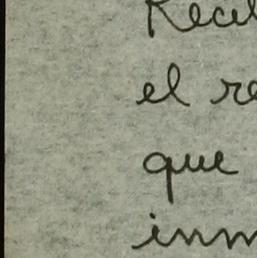 Recib
el re
que
inm